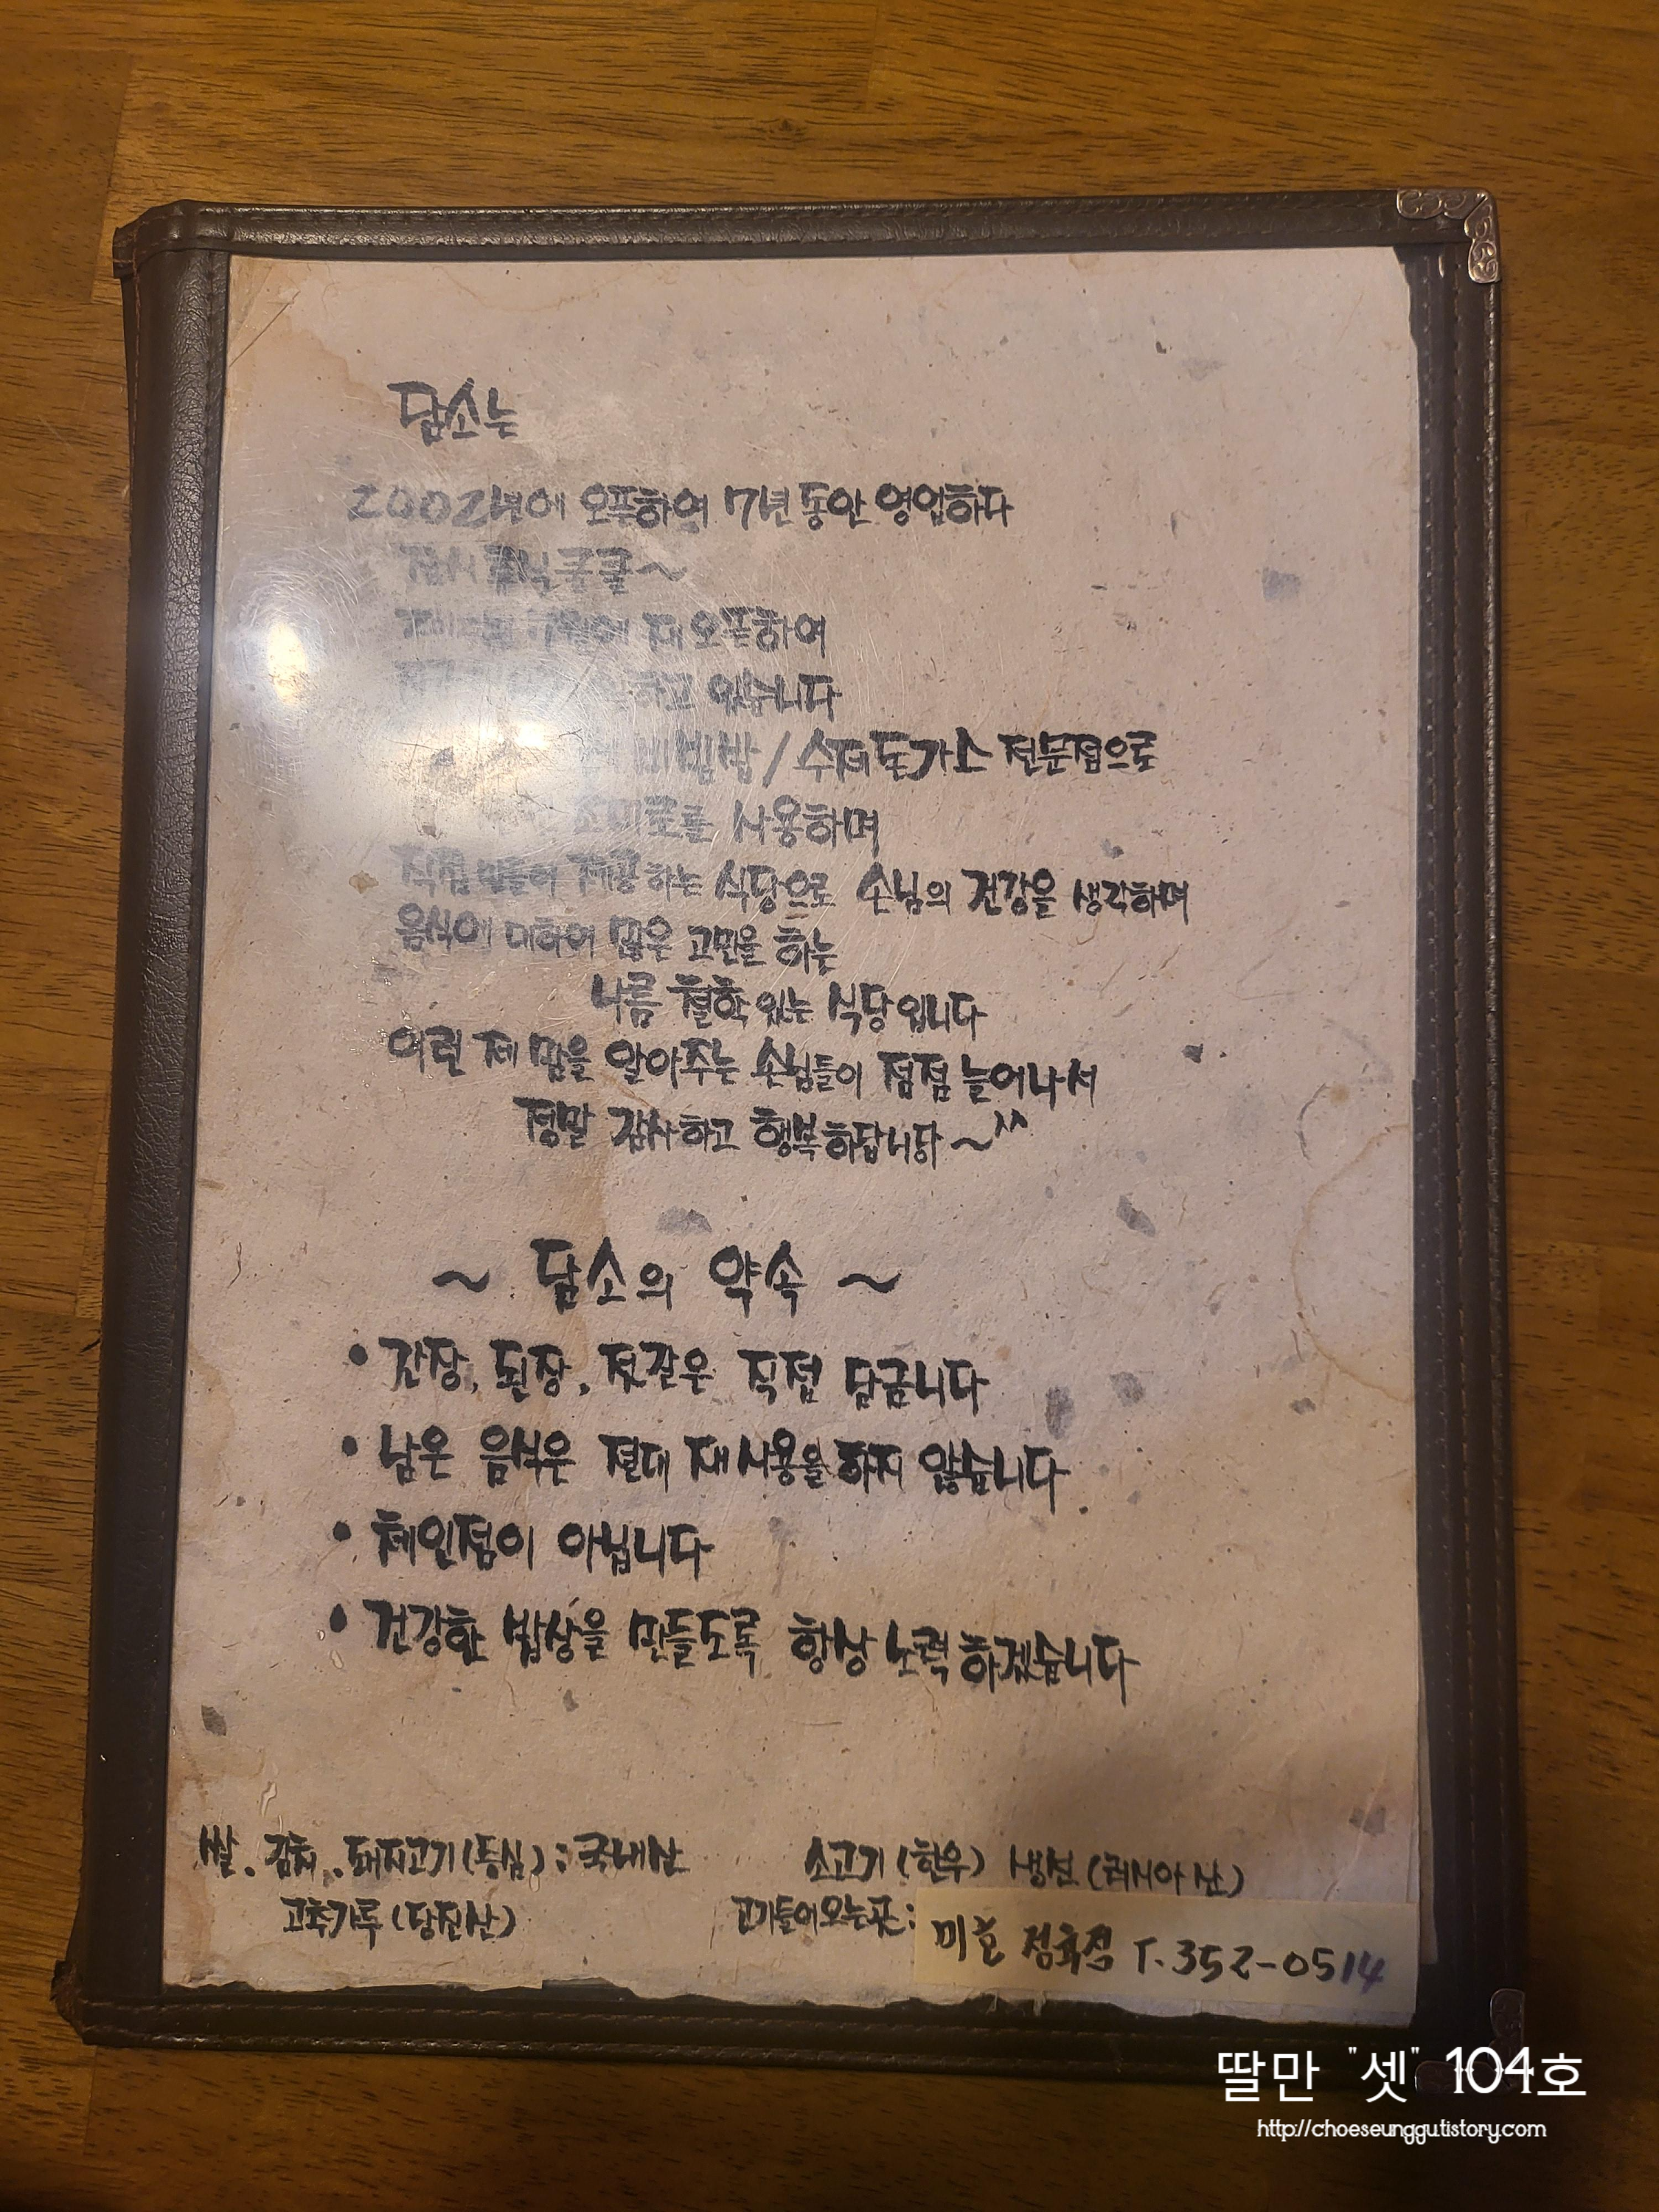 담소는
2002년에 오픈하여 7년동안 영업하다
잠시 휴식 쿨쿨~
재오픈하여
하고 있습니다
비빔밥 / 수제돈가스 전문점으로
조미료를 사용하며
직접 만들어 제공하는 식당으로 손님의 건강을 생각하며
음식에 대하여 많은 고민을 하는
나름 철학있는 식당입니다
이런 제 맘을 알아주는 손님들이 점점 늘어나서
정말 감사하고 행복하답니다~^^
~ 담소의 약속 ~
• 간장, 된장, 젓갈은 직접 담급니다
• 남은 음식은 절대 재사용을 하지 않습니다
• 체인점이 아닙니다
• 건강한 밥상을 만들도록 항상 노력하겠습니다
쌀. 김치. 돼지고기(등심) : 국내산 소고기(한우) 생선(러시아산)
고추가루(당진산) 고기들어오는곳: 정육점 T.352-0514
딸만 "셋" 104호
http://choeseunggu.tistory.com